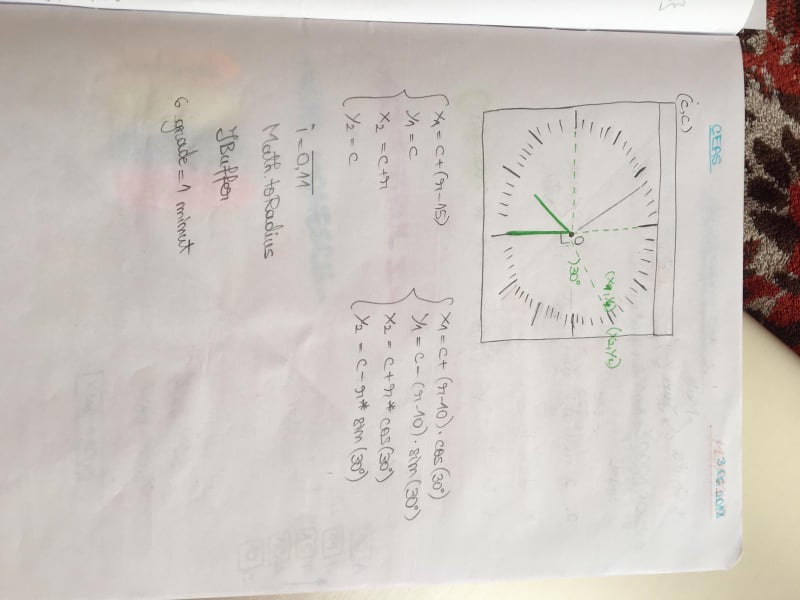 CEAS
3.06.2013
(c,c)
(x1,y1) (x2,y2)
O
30°
x1 = c+(r-15)
y1 = c
x2 = c+r
y2 = c
x1 = c+ (r-10) · cos(30°)
y1 = c-(r-10) · sim(30°)
x2 = c+r* cos(30°)
y2 = c-r* sim(30°)
i = 0,11
Math.toRadius
JBuffer
6 grade = 1 minut